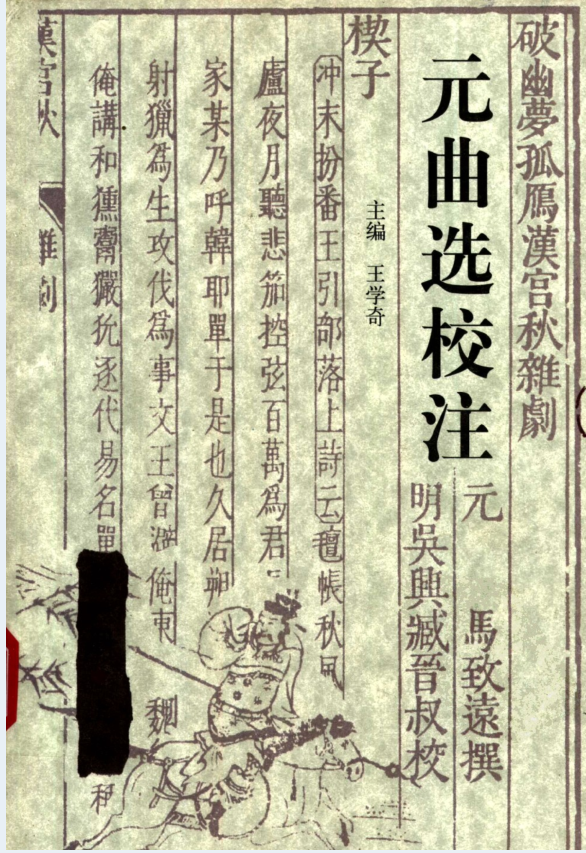 破幽夢孤鴈漢宮秋雜劇
元曲选校注
元 馬致遠撰
明吳興臧晉叔校
楔子
主编 王学奇
冲末扮番王引部落上詩云氊帳秋風
廬夜月聽悲笳控弦百萬爲君
家某乃呼韓耶單于是也久居朔
射獵爲生攻伐爲事文王曾避俺東 魏
俺講和獯鬻獫狁逐代易名單
漢宮秋 雜劇